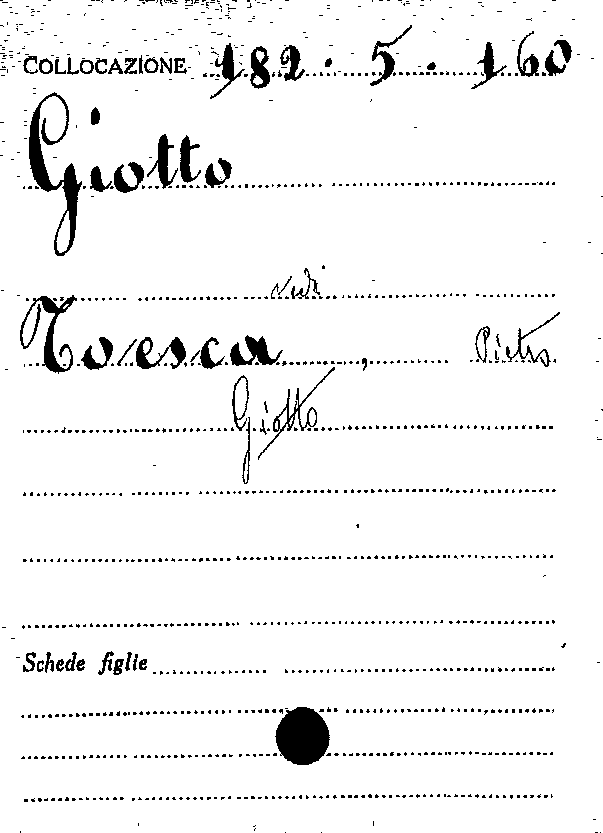 COLLOCAZIONE 182 . 5 . 160
Giotto
vedi
Toesca, Pietro
Giotto
Schede figlie